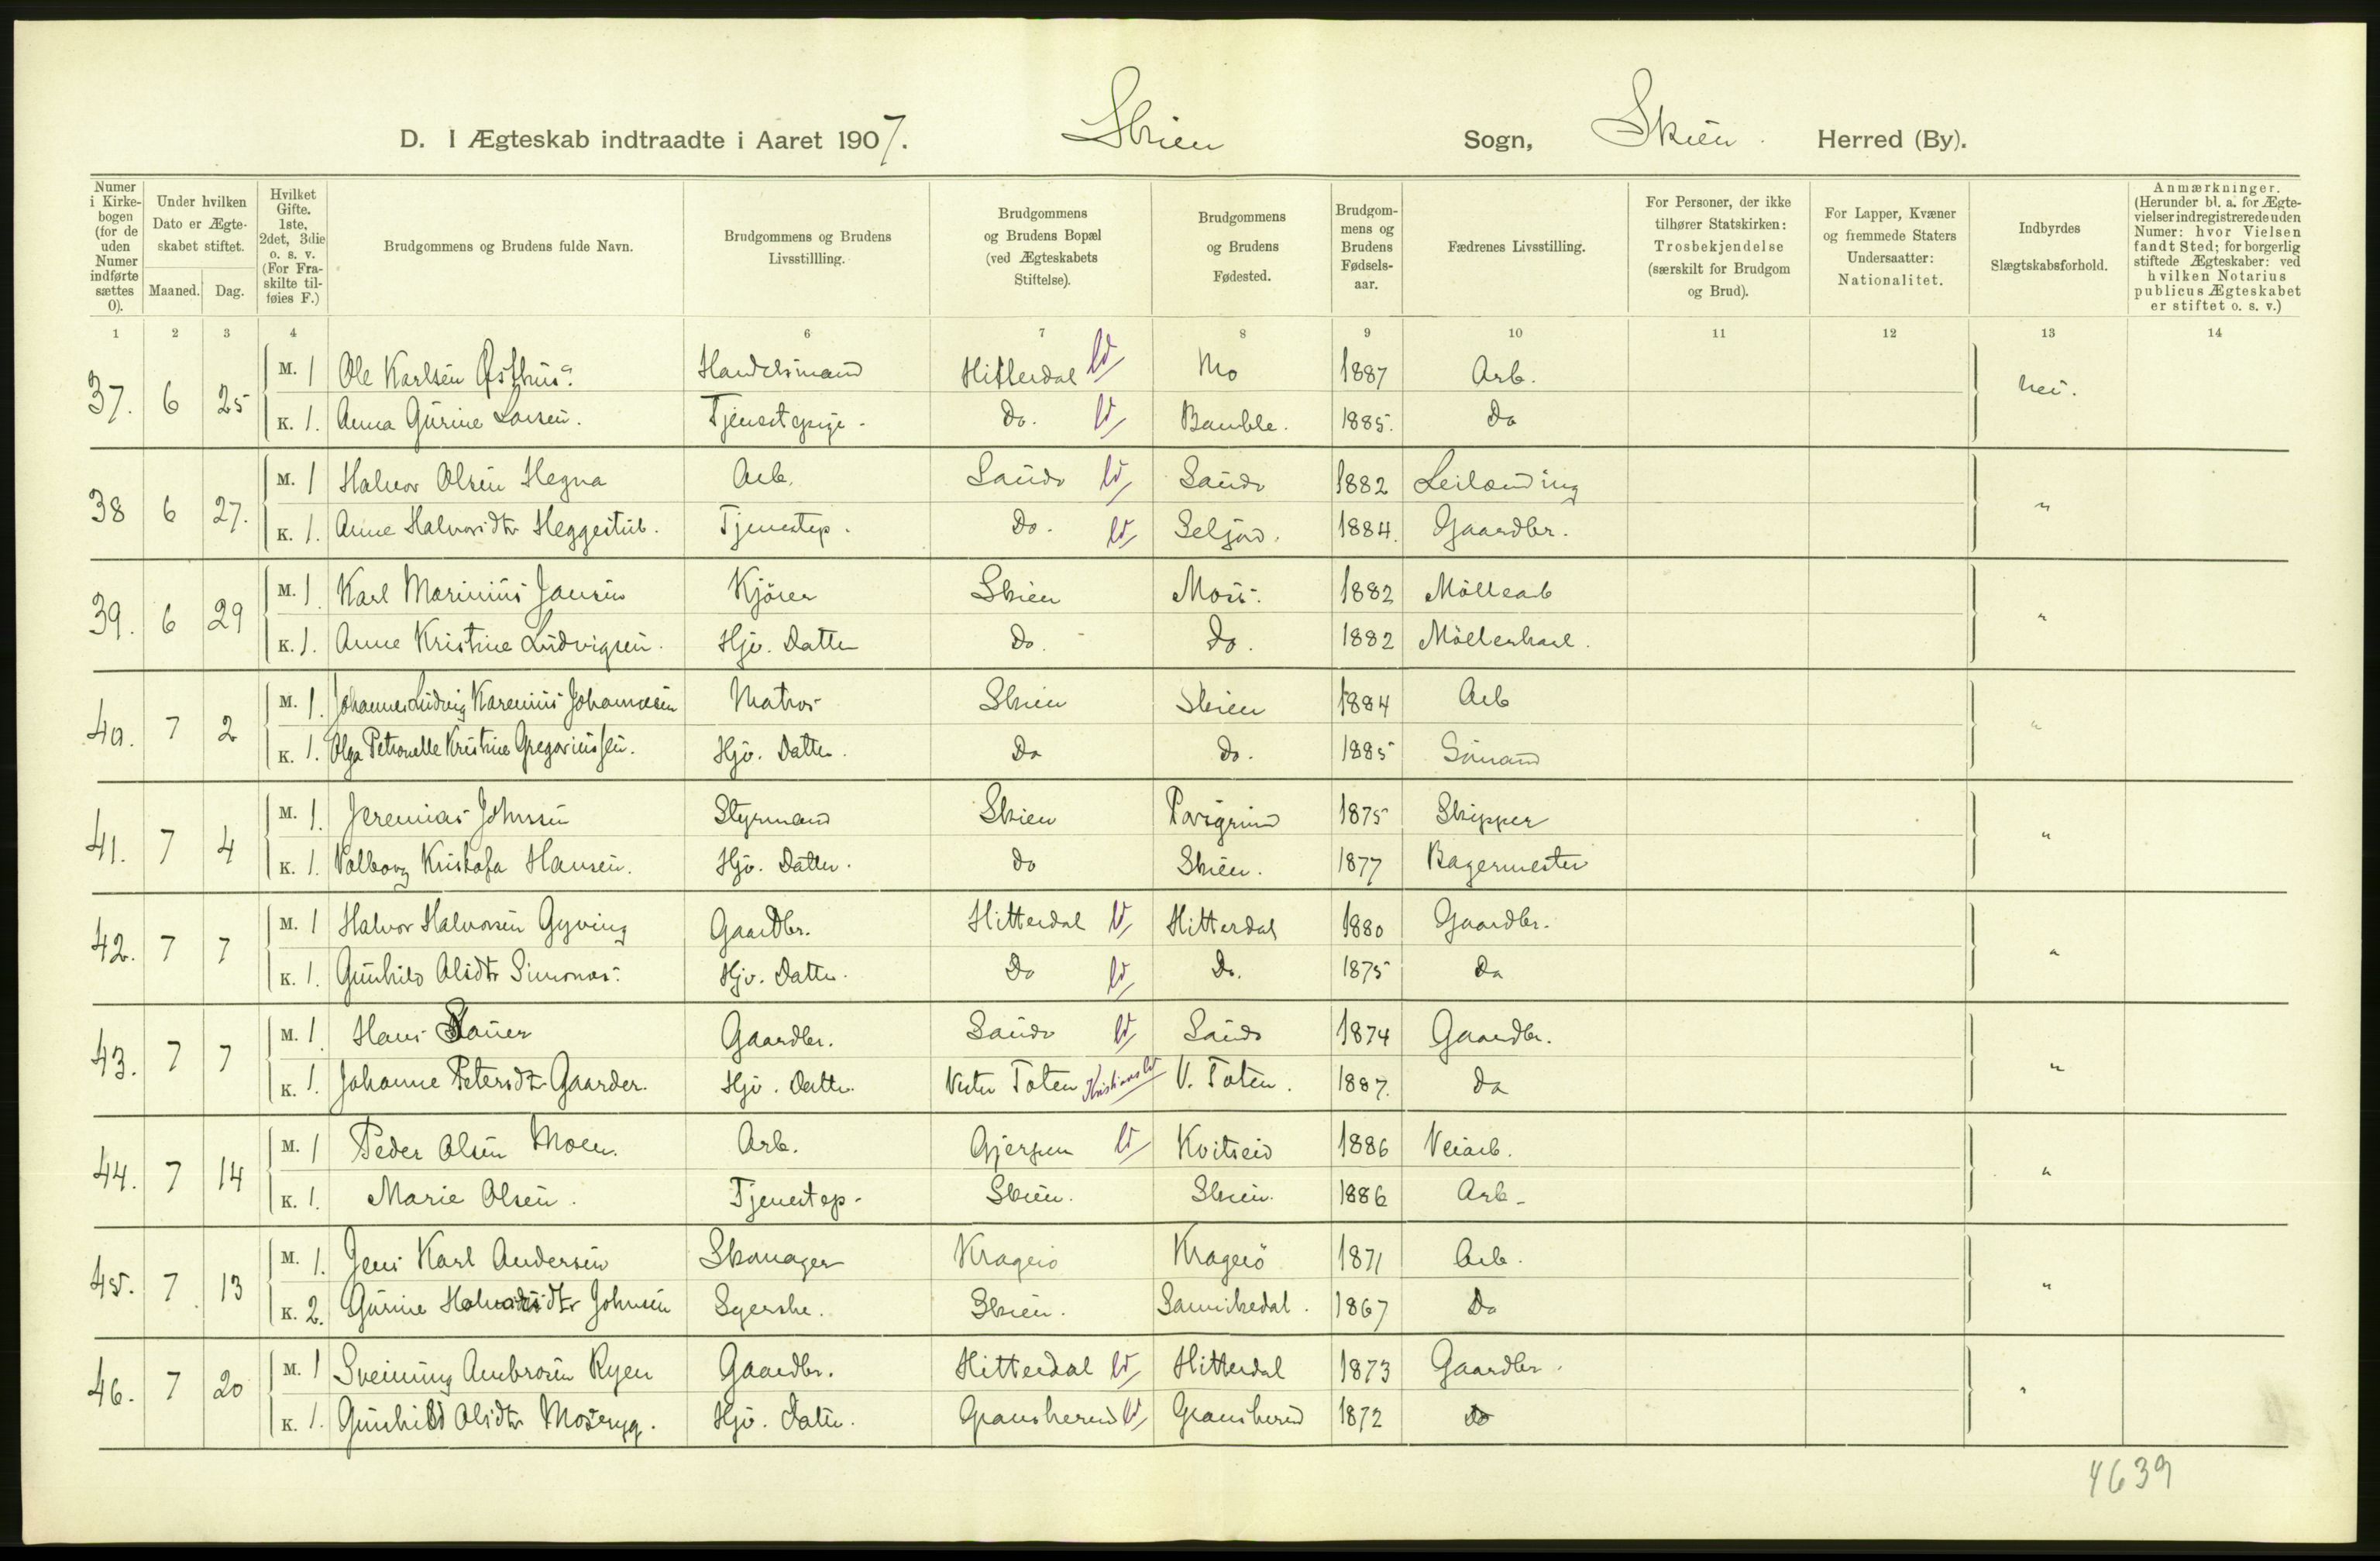 D. I Ægteskab indtraadte i Aaret 1907. Skien Sogn, Skien. Herred (By).
Numer i Kirkebogen (for de uden Numer indførte sættes 0).
Under hvilken Dato er Ægteskabet stiftet.
Maaned. Dag.
Hvilket Gifte. 1ste, 2det, 3die o. s. v. (For Fraskilte tilføies F.)
Brudgommens og Brudens fulde Navn.
Brudgommens og Brudens Livsstillling.
Brudgommens og Brudens Bopæl (ved Ægteskabets Stiftelse).
Brudgommens og Brudens Fødested.
Brudgommens og Brudens Fødselsaar.
Fædrenes Livsstilling.
For Personer, der ikke tilhører Statskirken: Trosbekjendelse (særskilt for Brudgom og Brud).
For Lapper, Kvæner og fremmede Staters Undersaatter: Nationalitet.
Indbyrdes Slægtskabsforhold.
Anmærkninger. (Herunder bl. a. for Ægtevielser indregistrerede uden Numer: hvor Vielsen fandt Sted; for borgerlig stiftede Ægteskaber: ved hvilken Notarius publicus Ægteskabet er stiftet o. s. v.)
1 2 3 4 6 7 8 9 10 11 12 13 14
37. 6 25 M. 1 Ole Karlsen Østhus. Handelsmand Hitterdal ld Mo 1887 Arb. nei.
K. 1. Anna Gurine Larsen. Tjenestepige. Do. ld Bamble. 1885. Do
38 6 27. M. 1 Halvor Olsen Hegna Arb. Saude ld Saude 1882 Leilænding "
K. 1. Anne Halvorsdtr Heggestul. Tjenestep. Do. ld Seljord. 1884. Gaardbr.
39. 6 29 M. 1. Karl Marinius Jansen Kjörer Skien Moss. 1882 Möllearb "
K. 1. Anne Kristine Ludvigsen. Hjv. Datter Do. Do. 1882 Möllerkarl.
40. 7 2 M. 1. Johannes Ludvig Karenius Johannesen Matros Skien Skien 1884 Arb "
K. 1. Olga Petronelle Kristine Gregoriussen. Hjv. Datter. Do Do. 1885 Sömand
41. 7 4 M. 1. Jeremias Johnsen Styrmand Skien Porsgrund 1875 Skipper "
K. 1. Valborg Kristofa Hansen. Hjv. Datter. Do Skien. 1877 Bagermester
42. 7 7 M. 1 Halvor Halvorsen Gyving Gaardbr. Hitterdal ld Hitterdal 1880 Gaardbr. "
K. 1. Gunhild Olsdtr Simonæs. Hjv. Datter. Do ld Do. 1875 Do
43. 7 7 M. 1. Hans Sauer Gaardbr. Saude ld Saude 1874 Gaardbr. "
K. 1. Johanne Petersdtr Gaarder. Hjv. Datter. Vestre Toten Kristians ld V. Toten. 1887. Do
44. 7 14 M. 1 Peder Olsen Moen. Arb. Gjerpen ld Kvitseid 1886 Veiarb. "
K. 1. Marie Olsen. Tjenestep. Skien. Skien. 1886 Arb.
45. 7. 13 M. 1. Jens Karl Andersen Skomager Kragerö Kragerö 1871 Arb. "
K. 2. Gurine Halvorsdtr Johnsen Syerske. Skien. Sannikedal. 1867 Do
46. 7 20 M. 1 Sveinung Ambrosen Ryen Gaardbr. Hitterdal ld Hitterdal 1873 Gaardbr. "
K. 1. Gunhild Olsdtr Moseryg. Hjv. Datter. Gransherred ld Gransherred 1872 Do
4639